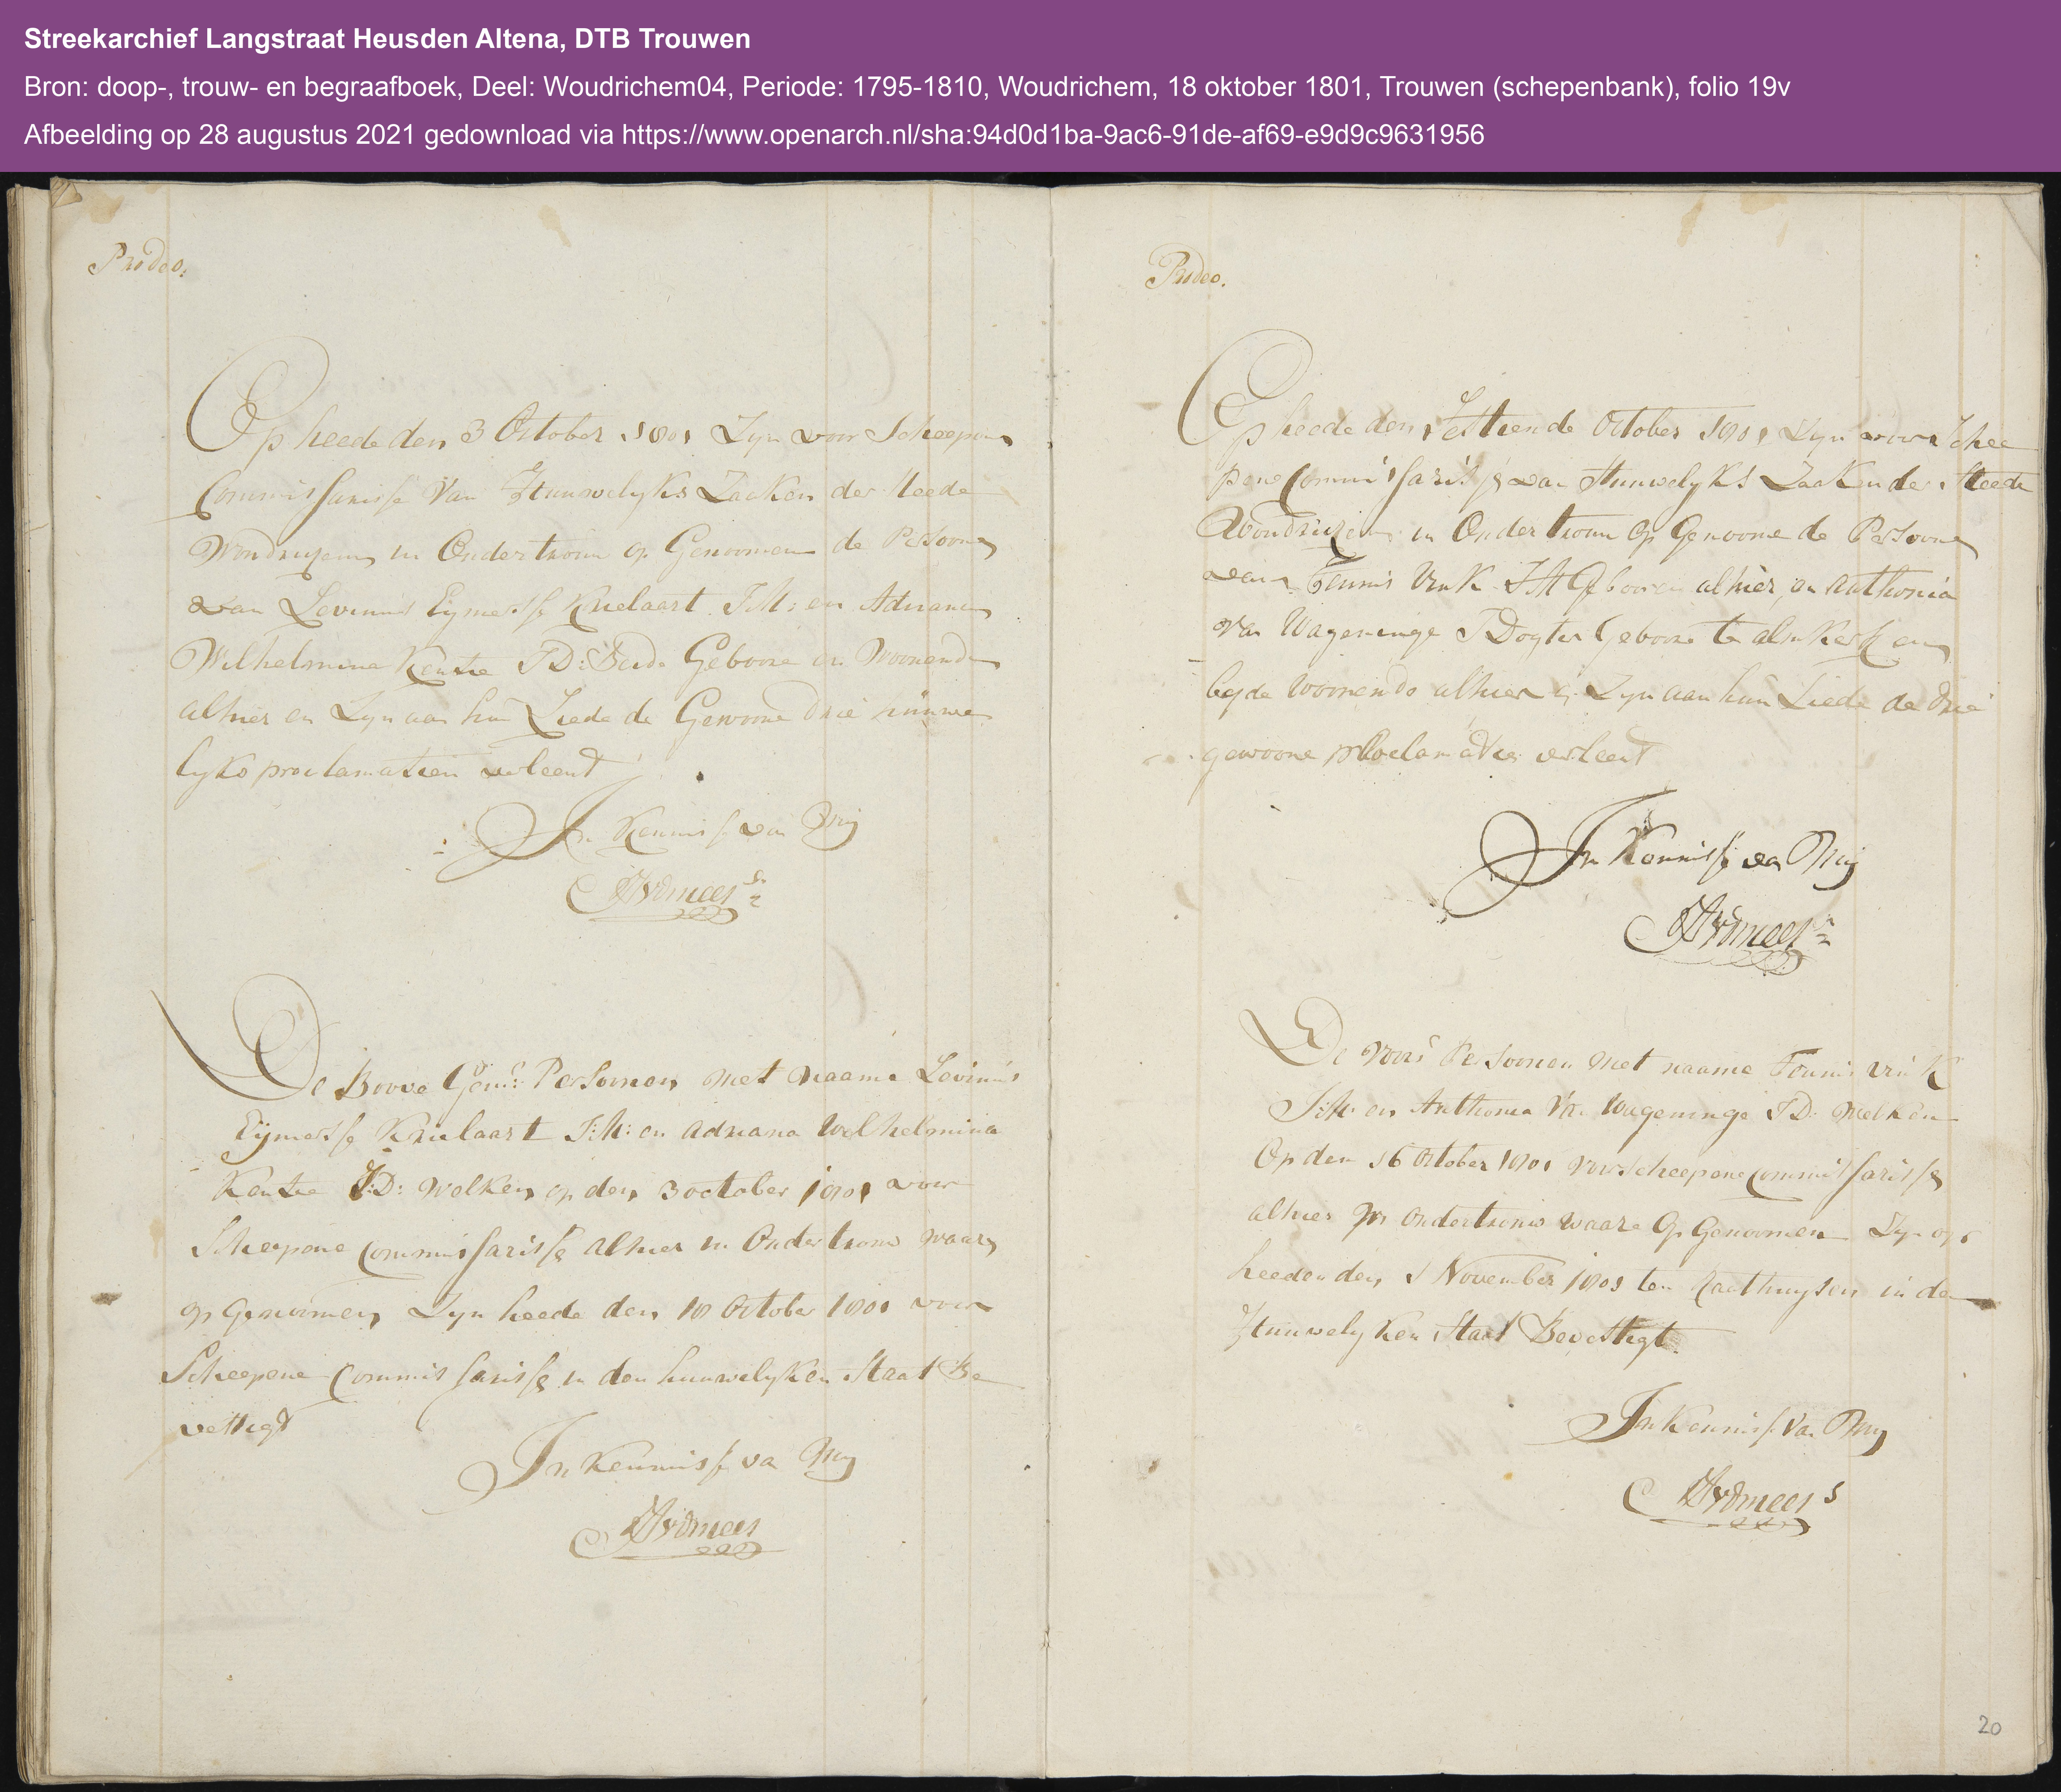 Streekarchief Langstraat Heusden Altena, DTB Trouwen
Bron: doop-, trouw- en begraafboek, Deel: Woudrichem04, Periode: 1795-1810, Woudrichem, 18 oktober 1801, Trouwen (schepenbank), folio 19v
Afbeelding op 28 augustus 2021 gedownload via https://www.openarch.nl/sha:94d0d1ba-9ac6-91de-af69-e9d9c9631956
Prodeo.
Op heede den 3 October 1801 Zyn voor Scheepens
Commissarisse Van Huuwelyks Zaaken der Steede
in Ondertrouw op Genoomen de Persoonen
van Levinus Eymertse Krielaart J:M: en Adriana
Wilhelmina J:D: Beide Geboore en Woonende
alhier en Zyn aan hun Liede de Gewoone drie huuwe
lyks proclamatien verleent
In Kennisse van Mij
De Boove Gen: Persoonen met naame Levinus
Eijmertse Krielaart J:M: en Adriana Wilhelmina
J:D: Welken op den 3 october 1801 voor
Scheepene Commissarisse alhier in Ondertrouw waaren
op Genoomen Zyn heede den 18 October 1801 voor
Scheepene Commissarisse in den huuwelyken Staat Be
vestigt
In Kennisse va Mij
Prodeo.
Op heede den Sestiende October 1801 Zyn voor Schee
pene Commissarisse van Huuwelyks Zaaken der Steede
in Ondertrouw Op Genoome de Persoonen
van Teunis Vink J:M Gebooren alhier, en Anthonia
Van Wageninge J Dogter Geboore te almkerk en
beyde Woonende alhier Zyn aan hun Liede de drie
gewoone proclamatien verleent
In Kennisse van Mij
De Voors Persoonen Met naame Teunis Vink
J:M: en Anthonia Vn Wageninge J:D: Welken
Op den 16 October 1801 voor Scheepene Commissarisse
alhier in Ondertrouw Waare Op Genoomen Zyn op
heeden den 1 November 1801 ten Raethuysen in den
Huuwelyken Staat Bevestigt.
In Kennisse Van Mij
20